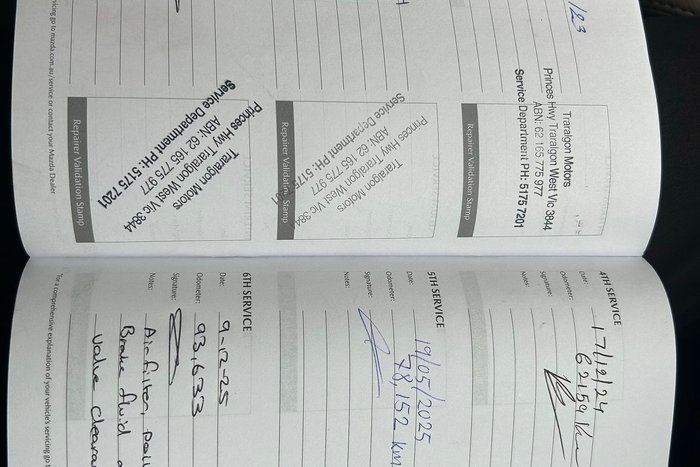 /23
Traralgon Motors
Princes Hwy Traralgon West Vic 3844
ABN: 62 165 775 977
Service Department PH: 5175 7201
Repairer Validation Stamp
Traralgon Motors
Princes Hwy Traralgon West Vic 384
ABN: 62 165 775 977
Service Department PH: 5175
Repairer Validation Stamp
Traralgon Motors
Princes Hwy Traralgon West Vic 3844
ABN: 62 165 775 977
Service Department PH: 5175 7201
Repairer Validation Stamp
vicing go to mazda.com.au/service or contact your Mazda Dealer
4TH SERVICE
Date: 17/12/24
Odometer: 62159 Km
Signature:
Notes:
5TH SERVICE
Date: 19/05/2025
Odometer: 78,152 km
Signature:
Notes:
6TH SERVICE
Date: 9-12-25
Odometer: 93,633
Signature:
Notes: Air filter, poll
Brake fluid
Valve cleara
For a comprehensive explanation of your vehicle's servicing go t